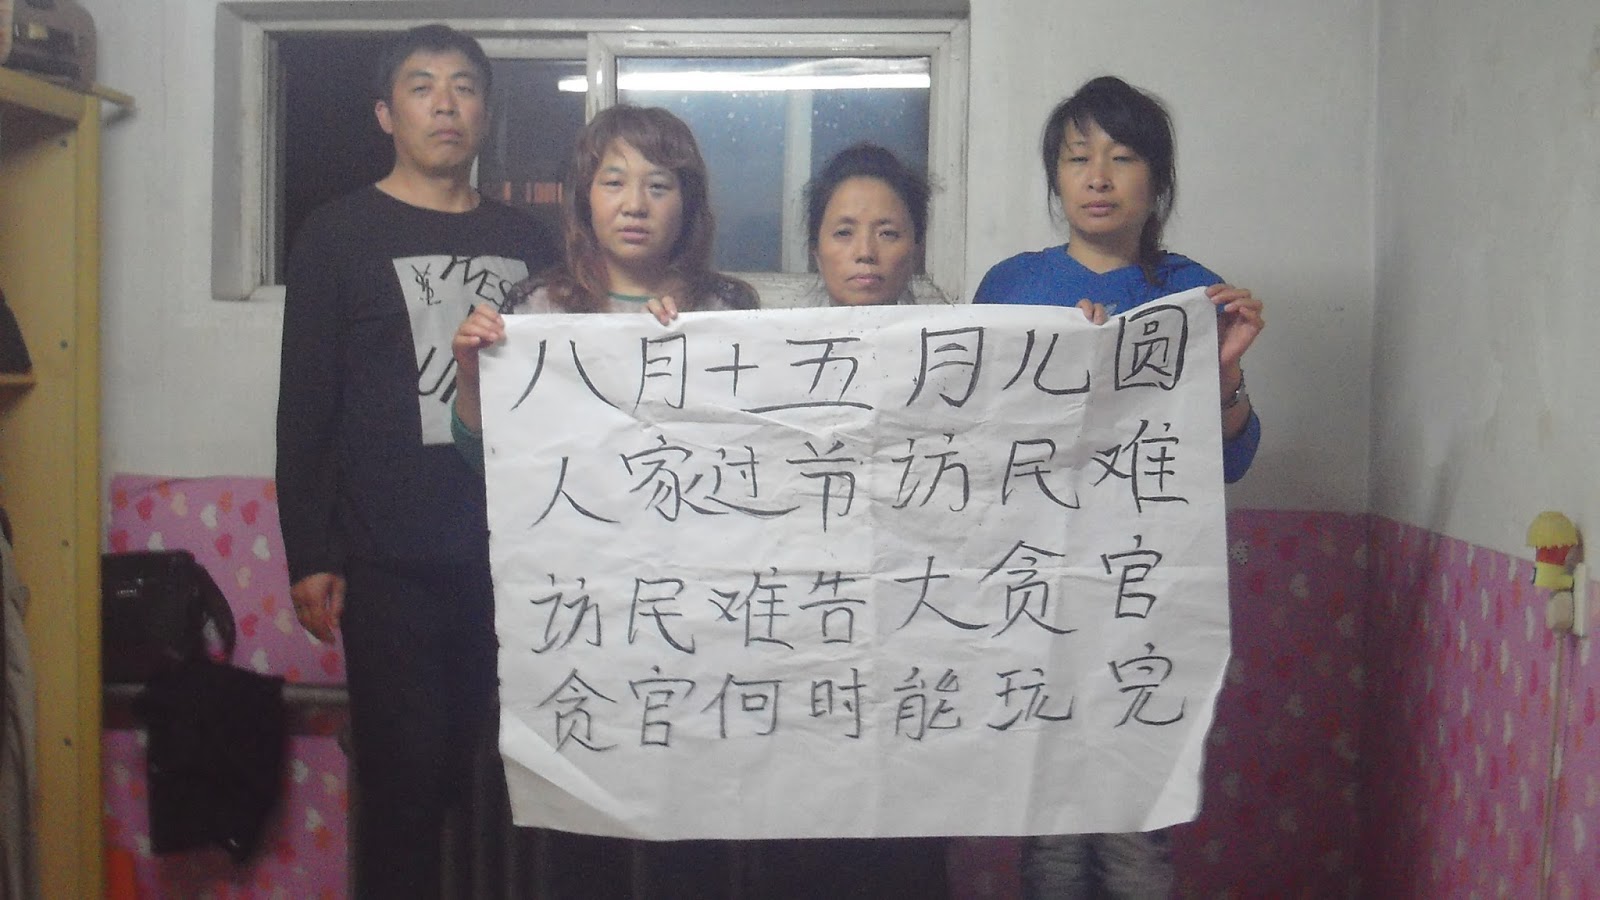 YVES
八月十五月儿圆
人家过节访民难
访民难告大贪官
贪官何时能玩完